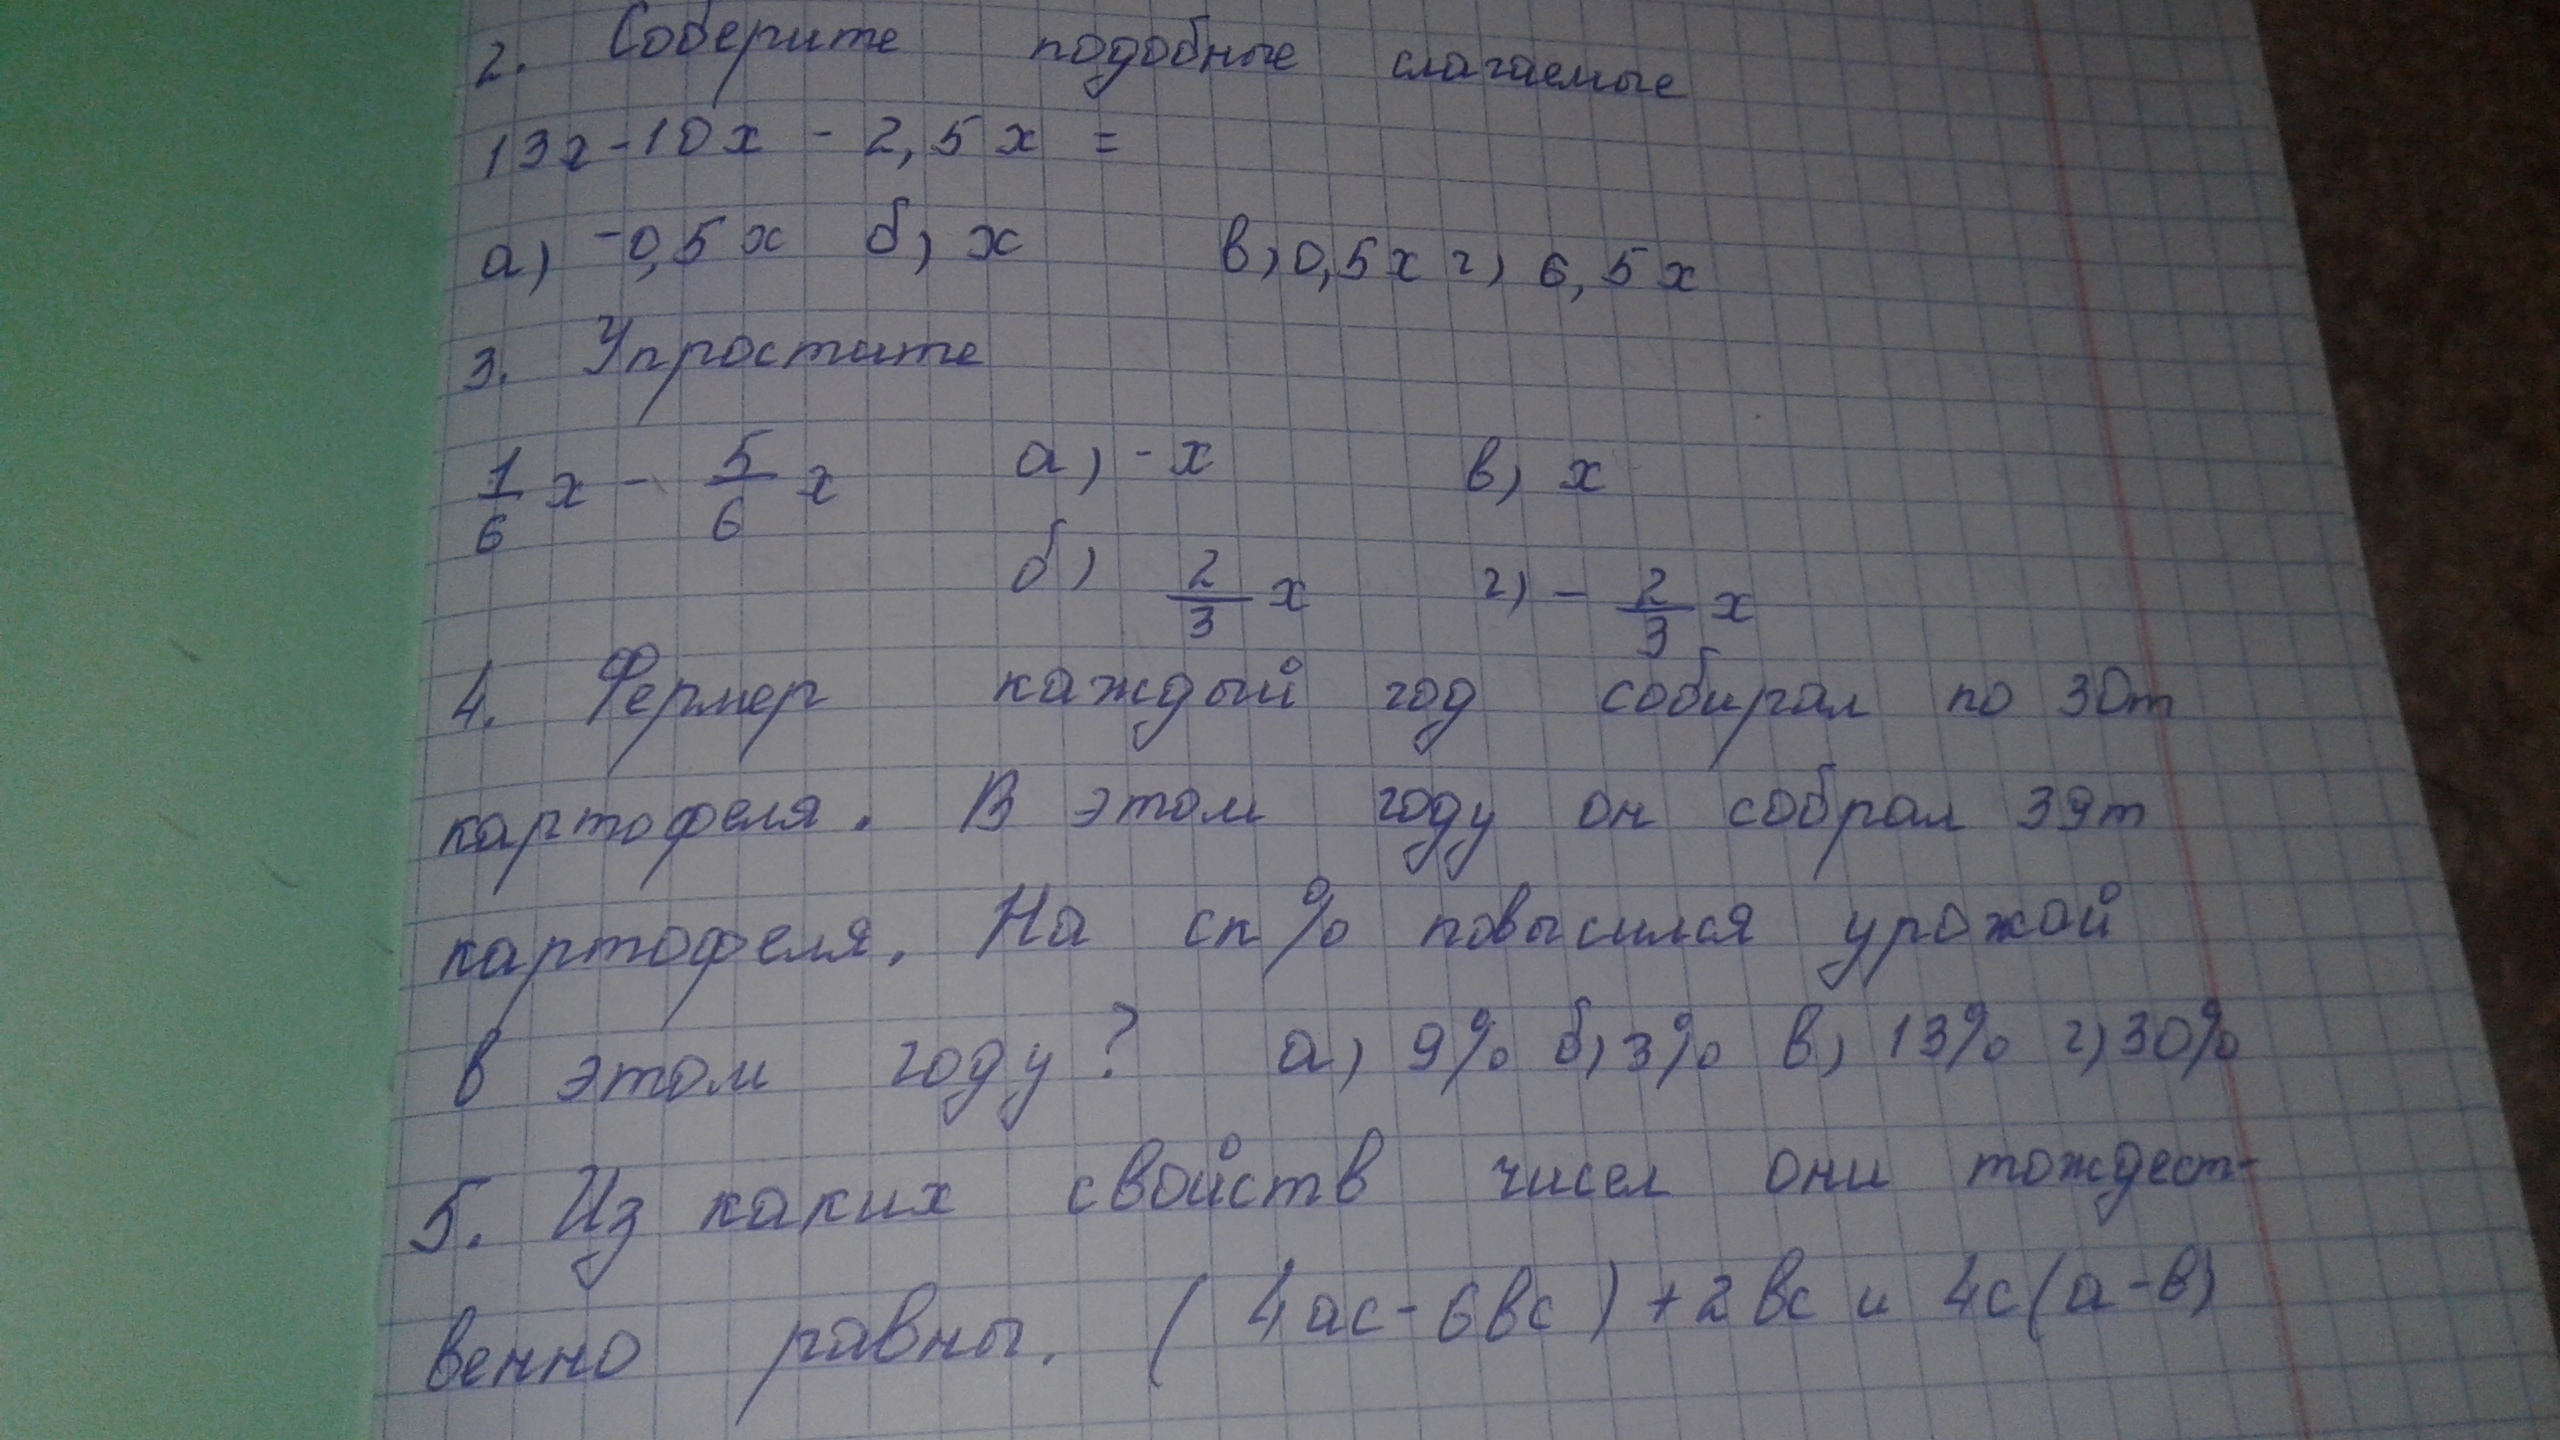 2. Соберите подобные слагаемые
13x-10x - 2,5x =
а) -0,5x б) x в) 0,5x г) 6,5x
3. Упростите
1/6 x - 5/6 x а) -x в) x
б) 2/3 x г) - 2/3 x
4. Фермер каждый год собирал по 30т
картофеля. В этом году он собрал 39т
картофеля. На ск% повысился урожай
в этом году? а) 9% б) 3% в) 13% г) 30%
5. Из каких свойств чисел они тождест-
венно равны. (4ac-6bc)+2bc и 4c(a-b)